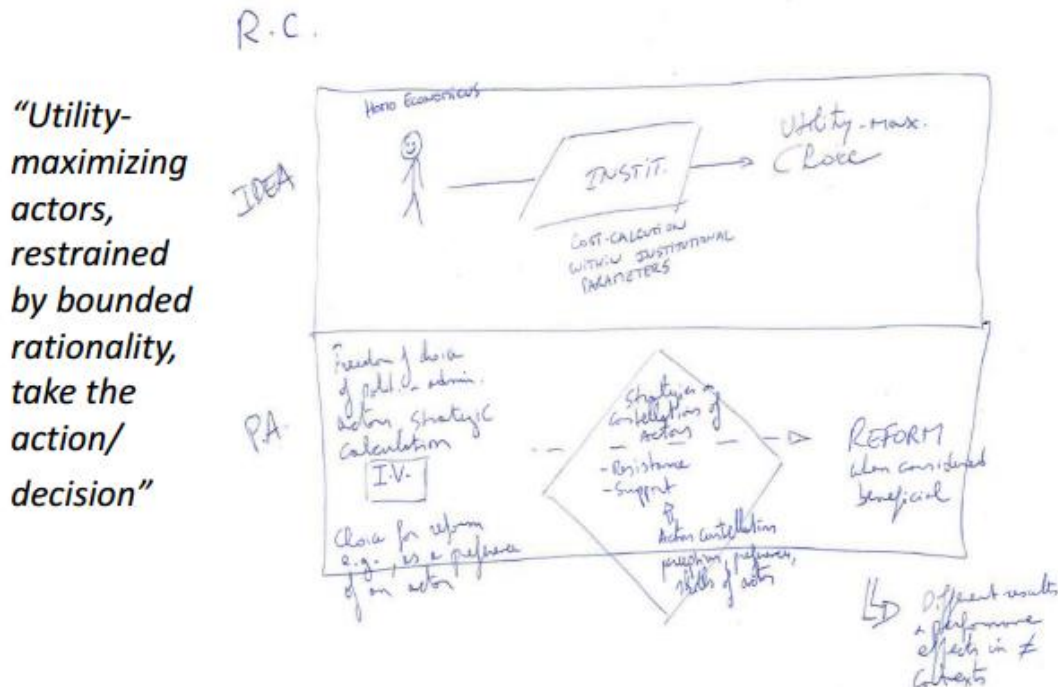 R.C.
“Utility-
maximizing
actors,
restrained
by bounded
rationality,
take the
action/
decision”
IDEA
HOMO ECONOMICUS
INSTIT.
COST-CALCUTION
WITHIN INSTITUTIONAL
PARAMETERS
Utility-max.
Choice
P.A.
Freedom of choice
of polit. - admin.
actors, strategic
calculation
I.V.
Choice for reform
e.g., as a preference
of an actor
Strategies
constellation of
Actors
- Resistance
- Support
Actor constellation
perceptions, preferences,
skills of actor
REFORM
when considered
beneficial
Different results
+ performance
effects in ≠
contexts